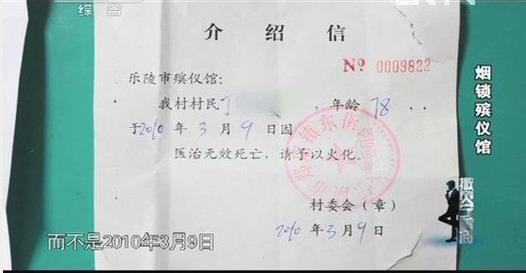 综合
介绍信
№ 0009822
乐陵市殡仪馆：
我村村民丁 ，年龄78，
于2010年3月9日因
医治无效死亡，请予以火化。
村委会（章）
2010年3月9日
镇东街
烟锁殡仪馆
而不是2010年3月9日